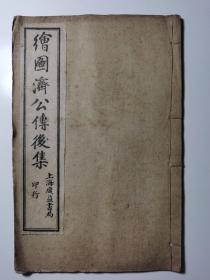 繪圖濟公傳後集
上海廣益書局
印行